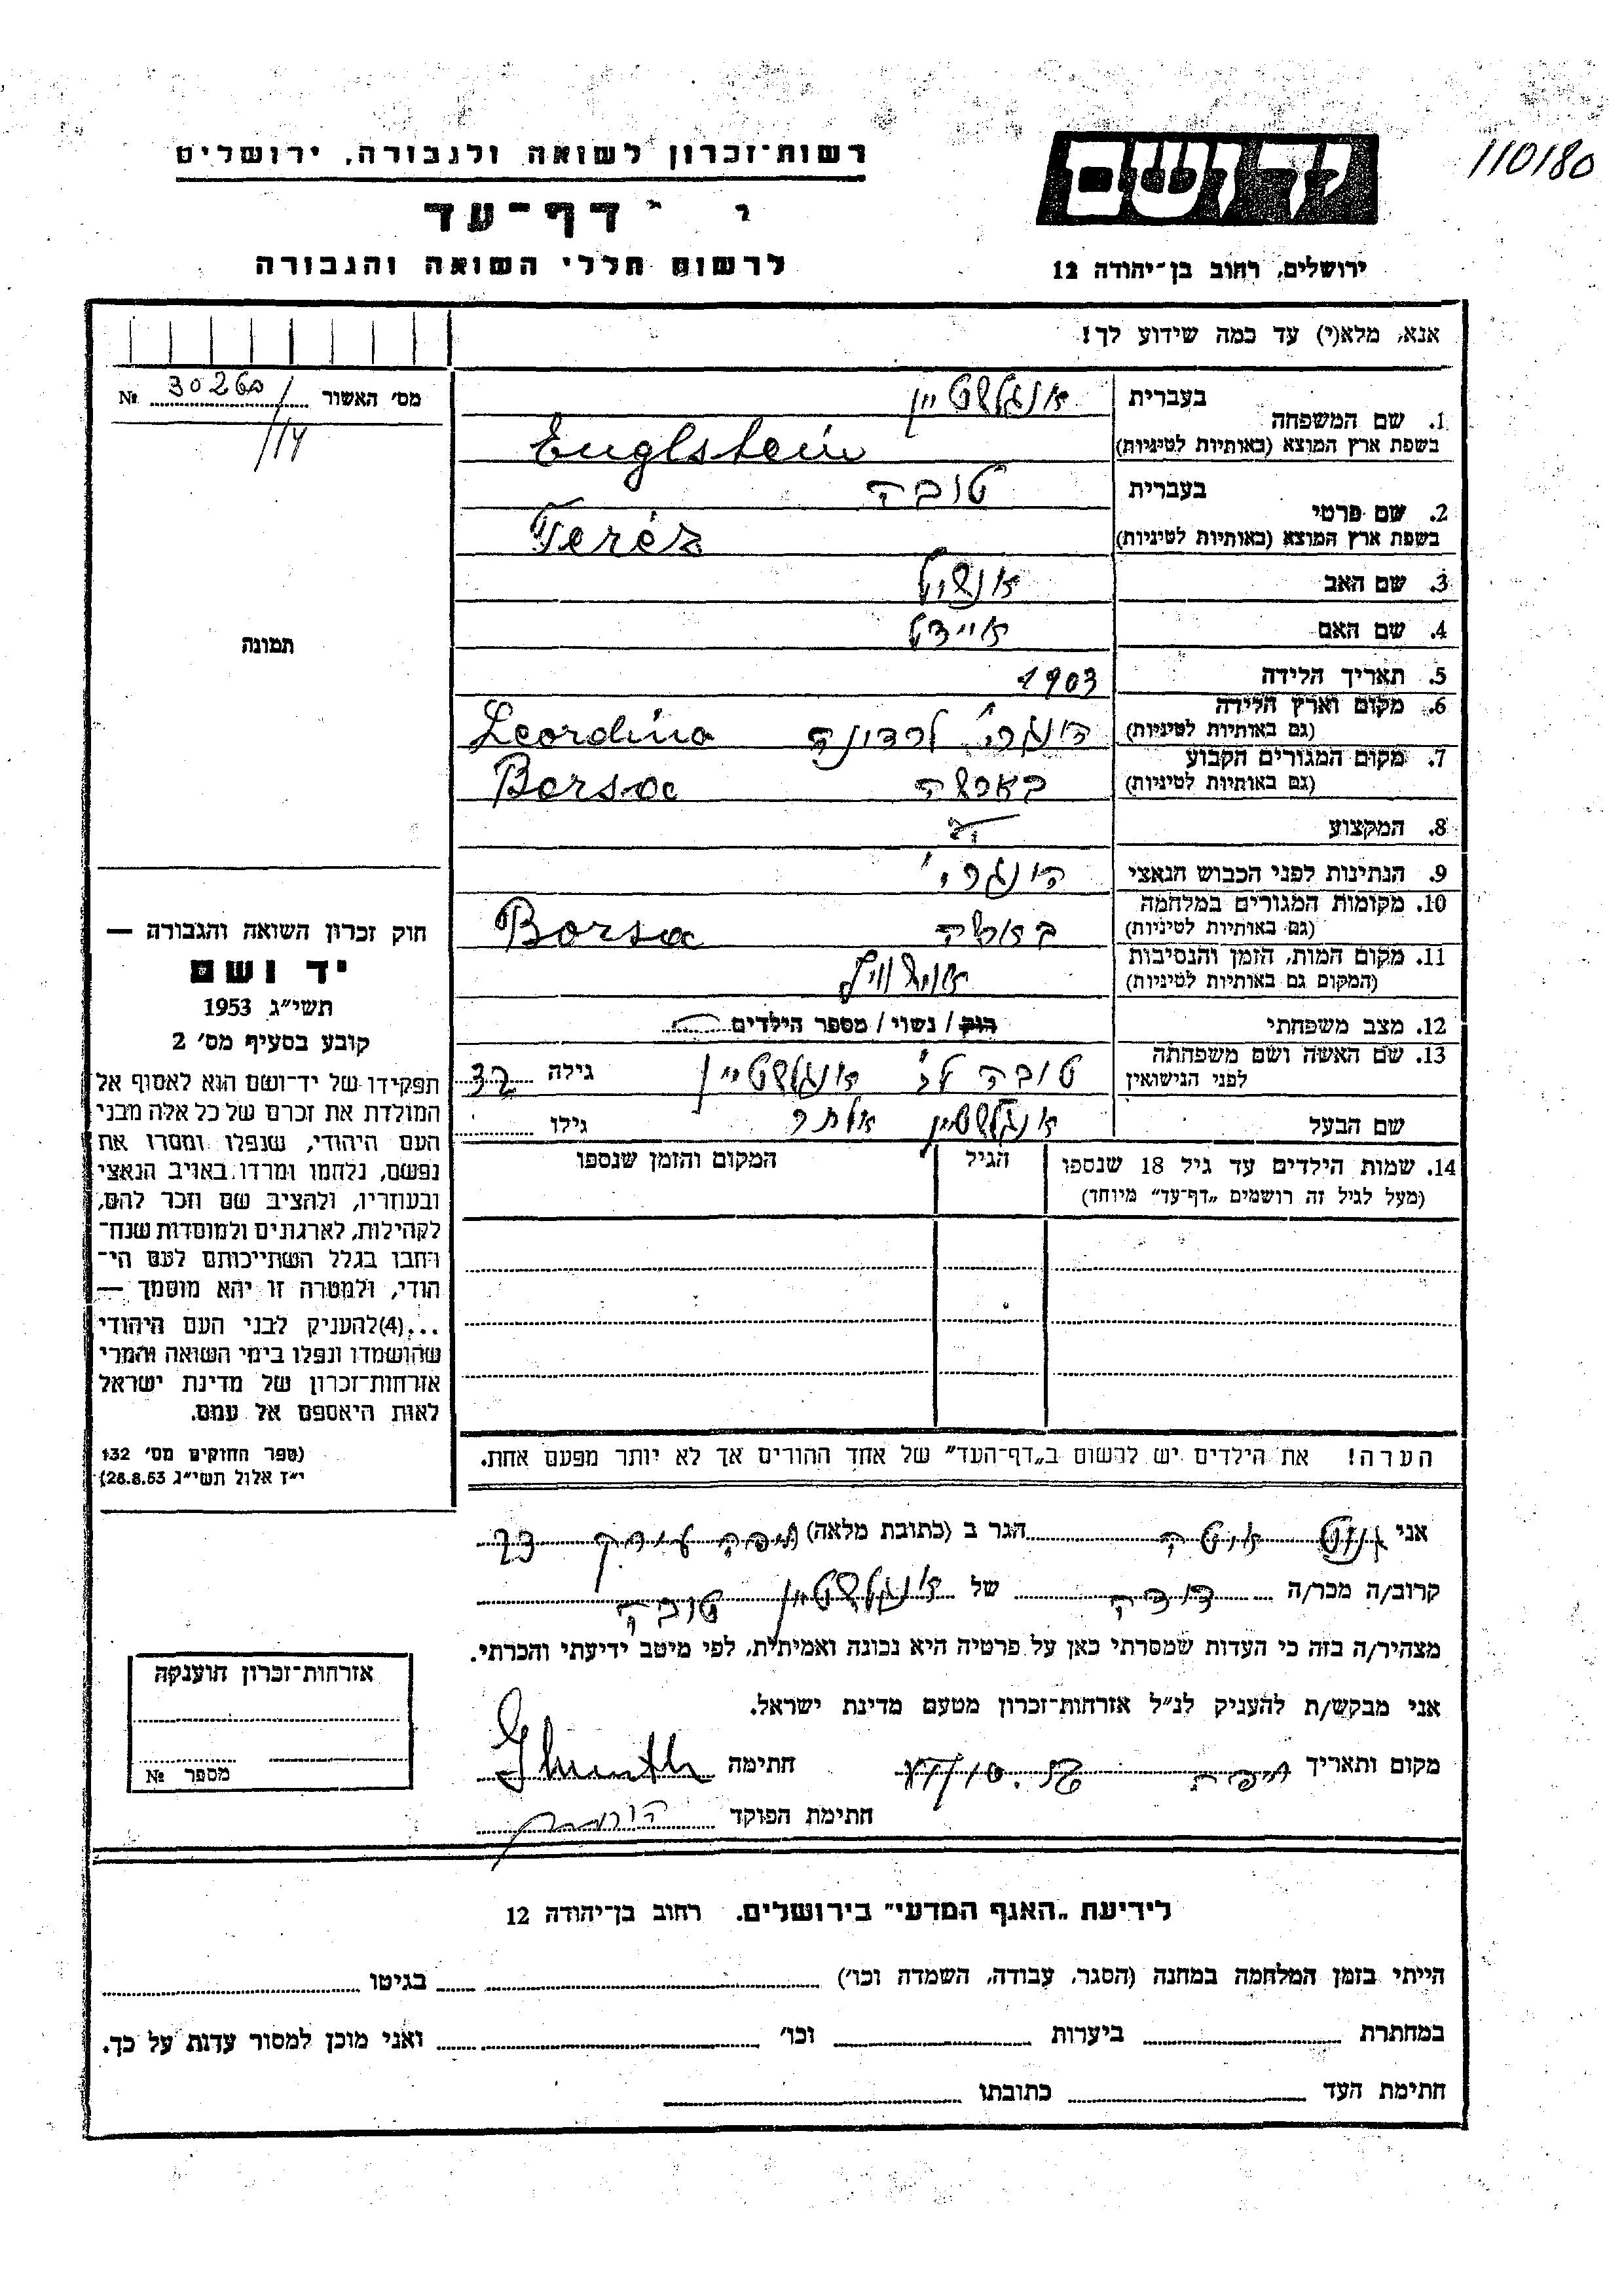 110180
יד ושם
רשות־זכרון לשואה ולגבורה, ירושלים
דף־עד
ירושלים, רחוב בן־יהודה 12
לרשום חללי השואה והגבורה
אנא, מלא(י) עד כמה שידוע לך!
מס׳ האשור 30260/114 №
תמונה
1. שם המשפחה
בעברית אנגלשטיין
בשפת ארץ המוצא (באותיות לטיניות) Englstein
2. שם פרטי
בעברית טובה
בשפת ארץ המוצא (באותיות לטיניות) Teréz
3. שם האב אנשיל
4. שם האם
5. תאריך הלידה 1903
6. מקום וארץ הלידה
(גם באותיות לטיניות) הונגרי׳ לרדונה Leordina
7. מקום המגורים הקבוע
(גם באותיות לטיניות) בארשה Borsa
8. המקצוע
9. הנתינות לפני הכבוש הנאצי הונגרי׳
10. מקומות המגורים במלחמה
(גם באותיות לטיניות) בארשה Borsa
11. מקום המות, הזמן והנסיבות
(המקום גם באותיות לטיניות)
12. מצב משפחתי רוק / נשוי / מספר הילדים
13. שם האשה ושם משפחתה
לפני הנישואין טובה אנגלשטיין גילה
שם הבעל אנגלשטיין גילו
14. שמות הילדים עד גיל 18 שנספו
(מעל לגיל זה רושמים „דף־עד״ מיוחד)
הגיל
המקום והזמן שנספו
הערה! את הילדים יש לרשום ב„דף־העד״ של אחד ההורים אך לא יותר מפעם אחת.
חוק זכרון השואה והגבורה —
יד ושם
תשי״ג 1953
קובע בסעיף מס׳ 2
תפקידו של יד־ושם הוא לאסוף אל
המולדת את זכרם של כל אלה מבני
העם היהודי, שנפלו ומסרו את
נפשם, נלחמו ומרדו באויב הנאצי
ובעוזריו, ולהציב שם וזכר להם,
לקהילות, לארגונים ולמוסדות שנח־
רבו בגלל השתייכותם לעם הי־
הודי, ולמטרה זו יהא מוסמך —
...(4)להעניק לבני העם היהודי
שהושמדו ונפלו בימי השואה והמרי
אזרחות־זכרון של מדינת ישראל
לאות היאספם אל עמם.
(ספר החוקים מס׳ 132
י״ז אלול תשי״ג 28.8.53)
אני הגר ב (כתובת מלאה) חיפה
קרוב/ה מכר/ה דודה של אנגלשטיין טובה
מצהיר/ה בזה כי העדות שמסרתי כאן על פרטיה היא נכונה ואמיתית, לפי מיטב ידיעתי והכרתי.
אני מבקש/ת להעניק לנ״ל אזרחות־זכרון מטעם מדינת ישראל.
מקום ותאריך חיפה חתימה
חתימת הפוקד
אזרחות־זכרון הוענקה
מספר №
לידיעת „האגף המדעי״ בירושלים. רחוב בן־יהודה 12
הייתי בזמן המלחמה במחנה (הסגר, עבודה, השמדה וכו׳) בגיטו
במחתרת ביערות וכו׳ ואני מוכן למסור עדות על כך.
חתימת העד כתובתו